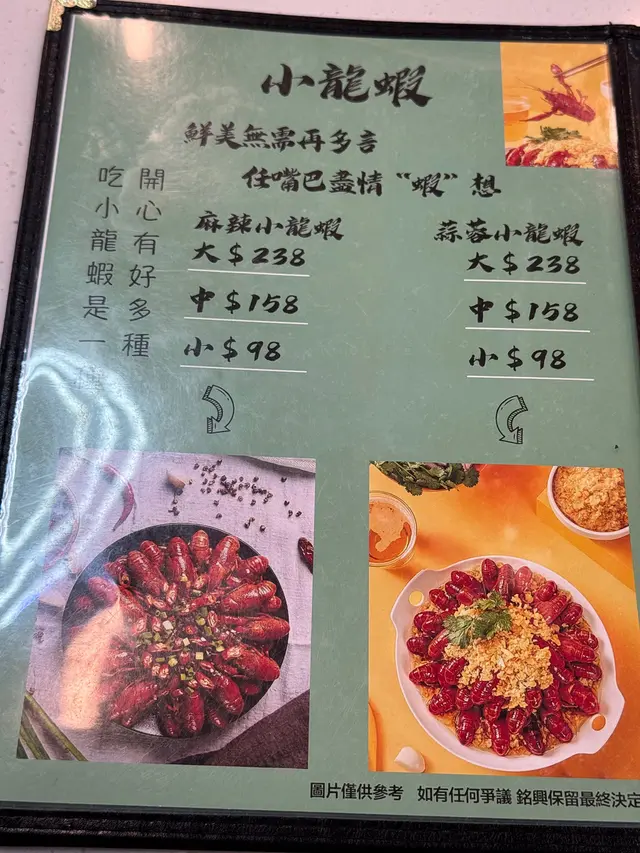 小龍蝦
鮮美無需再多言
任嘴巴盡情“蝦”想
開心有好多種
吃小龍蝦是一種
麻辣小龍蝦
大 $238
中 $158
小 $98
蒜蓉小龍蝦
大 $238
中 $158
小 $98
圖片僅供參考 如有任何爭議 銘興保留最終決定